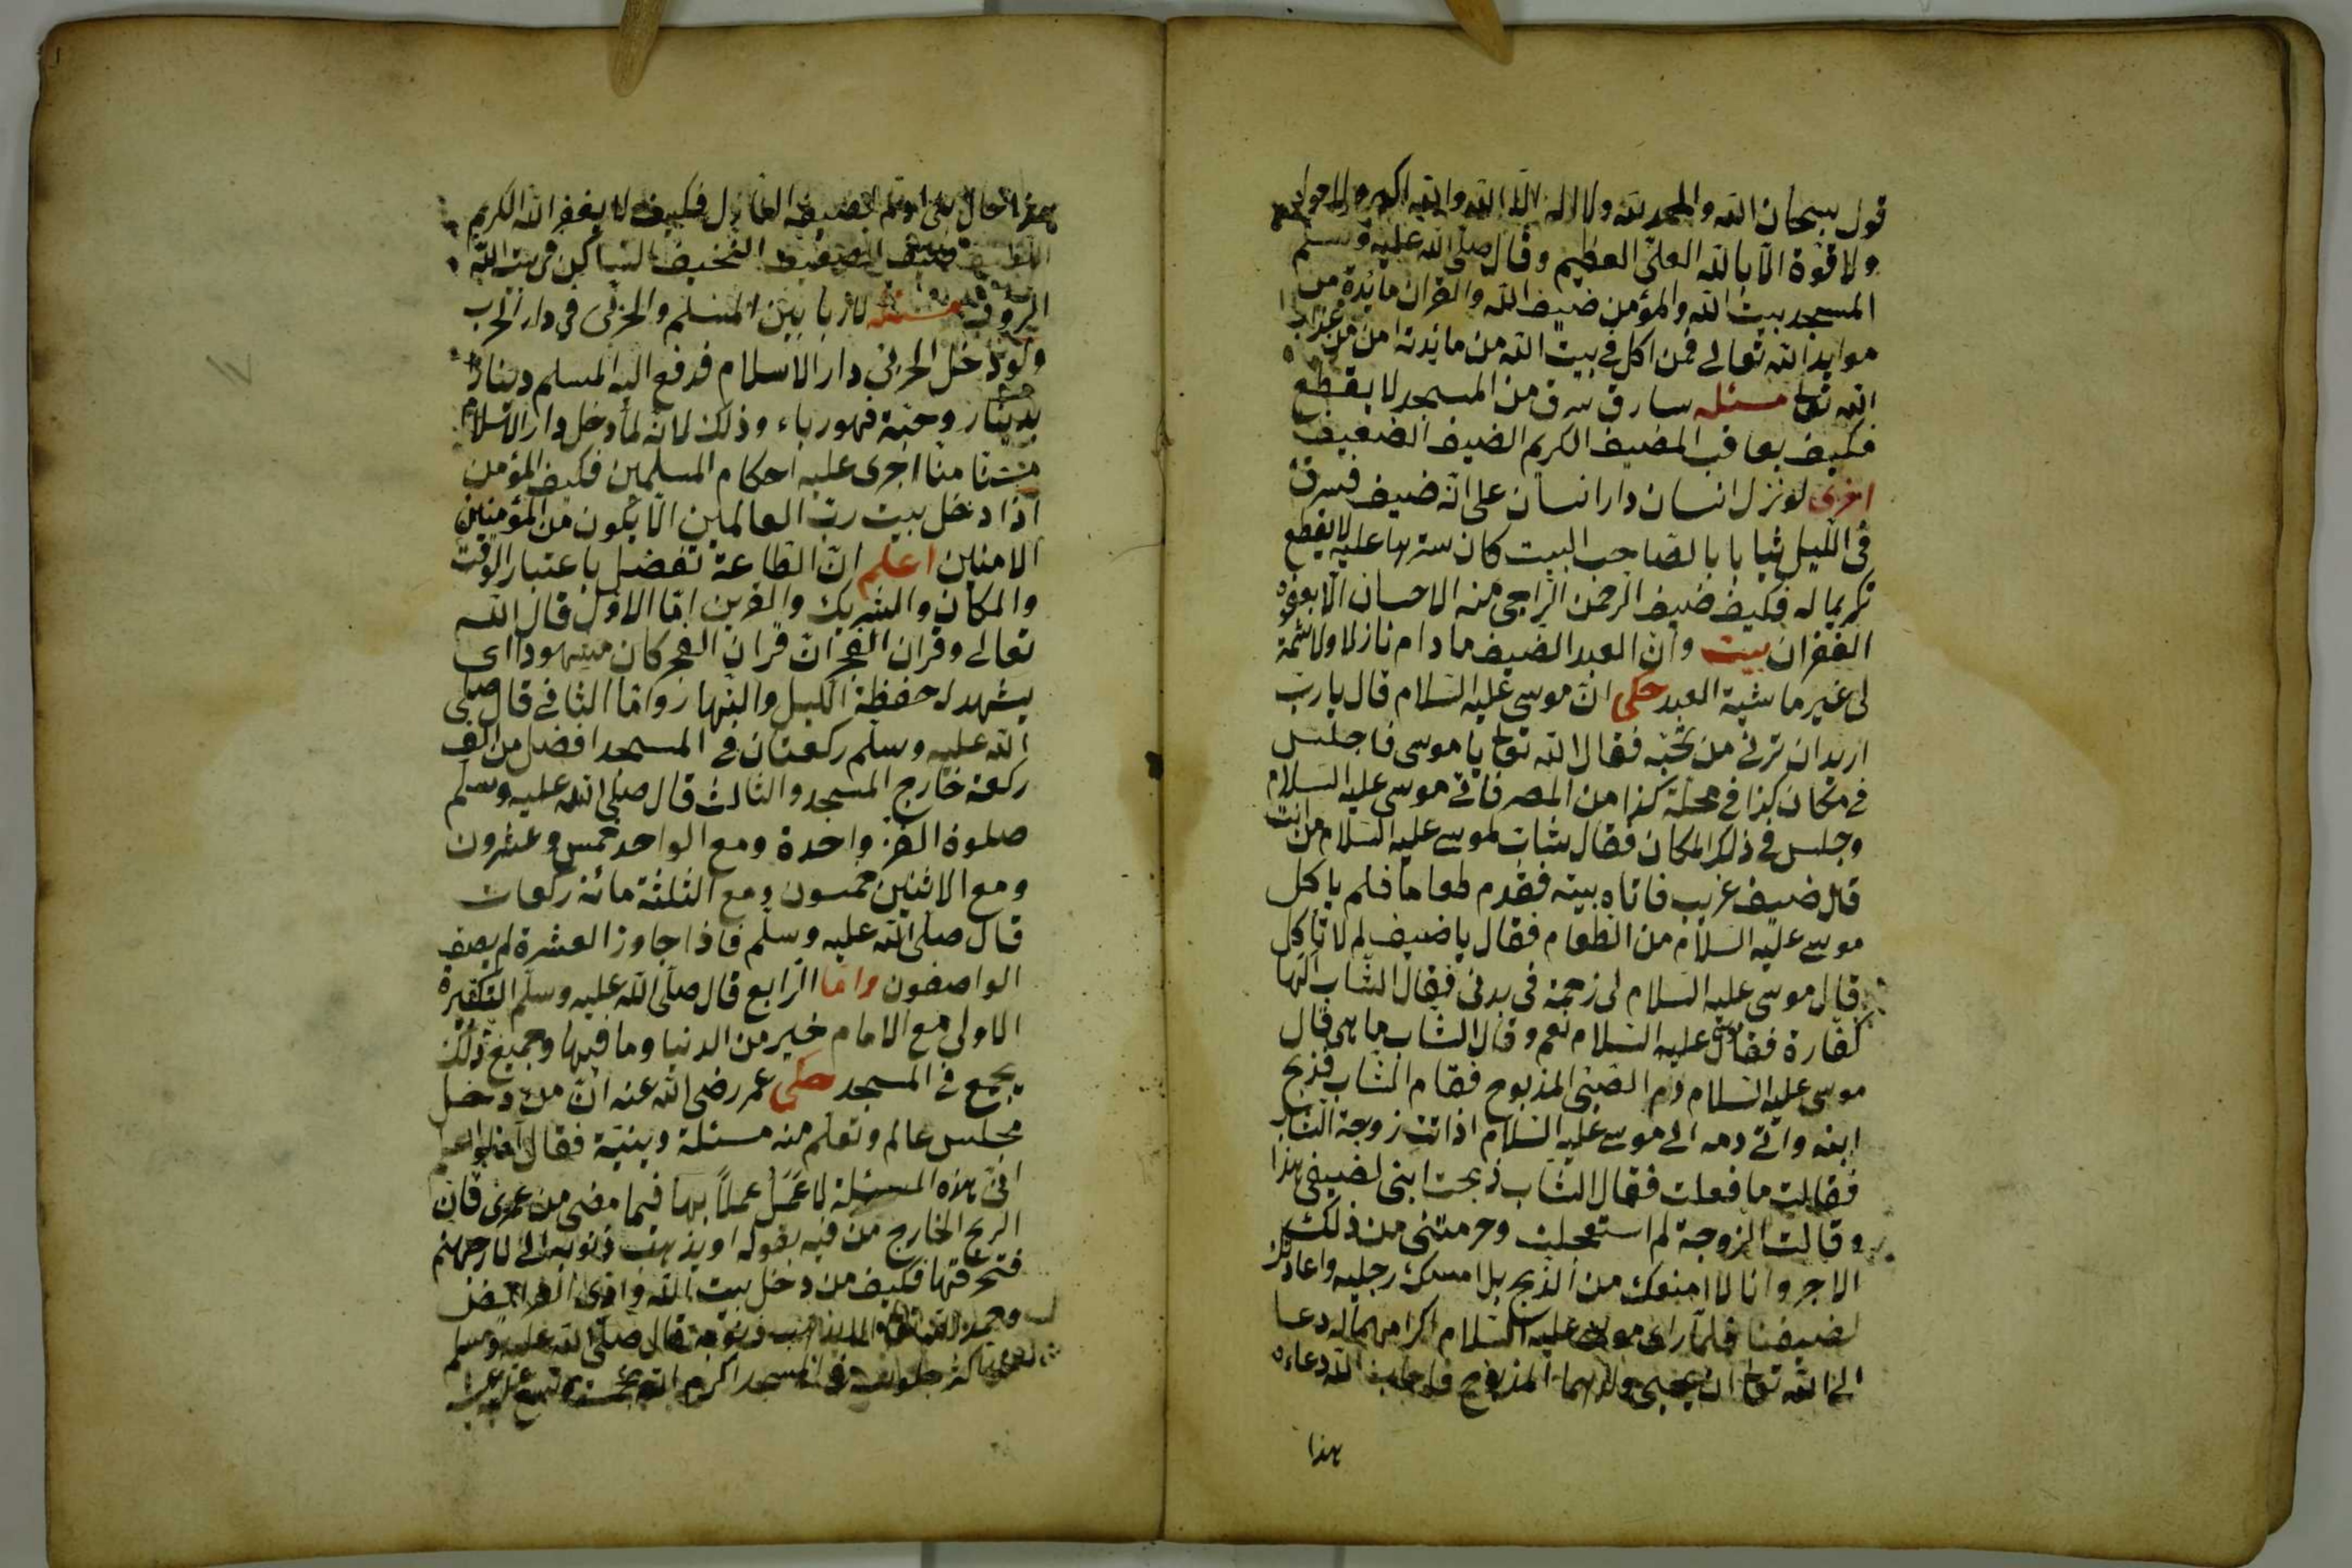 قول سبحان الله والحمد لله ولا اله الا الله والله اكبر ولا حول
ولا قوة الا بالله العلى العظيم وقال صلى الله عليه وسلم
المسجد بيت الله والمؤمن ضيف الله والقران مائدة من
موايد الله تعالى فمن اكل فى بيت الله من مائدته امن من عذاب
الله تعا مسئله سارق سرق من المسجد لا يقطع
فكيف يعاقب المضيف الكريم الضيف الضعيف
اخرى لو نزل انسان دار انسان على انه ضيف فسرق
فى الليل ثيابا بالصاحب البيت كان سترها عليه لا يقطع
تكريما له فكيف ضيف الرحمن الراجى منه الاحسان الا
الغفران بيت وان العبد الضيف ما دام نازلا ولا شيمة
لى غير ما شية العبد حكى ان موسى عليه السلام قال يا رب
اريد ان ترنى من تحبه فقال الله تعا يا موسى فاجلس
فى مكان كذا فى محلة كذا من المصر فاتى موسى عليه السلام
وجلس فى ذلك المكان فقال شاب لموسى عليه السلام من انت
قال ضيف غريب فاتاه بيته فقدم طعاما فلم ياكل
موسى عليه السلام من الطعام فقال يا ضيف لم لا تأكل
قال موسى عليه السلام لى زحمة فى بدنى فقال الشاب الها
كفارة فقال موسى عليه السلام نعم وقال الشاب ما هى قال
موسى عليه السلام دم الصبى المذبوح فقام الشاب فذبح
ابنه واتى دمه الى موسى عليه السلام اذا اتت زوجة الشاب
فقالت ما فعلت فقال الشاب ذبحت ابنى لضيفى هذا
وقالت الزوجة لم استعجلت وحرمتنى من ذلك
الاجر وانا لا امنعك من الذبح بل امسك رجليه واعاونك
لضيفنا فلما راى موسى عليه السلام اكرامهما له دعا
الى الله تعا ان يحيى ولدهما المذبوح فاجاب الله دعاءه
هذا
هذا حال فكيف لا يغفر الله الكريم
الضعيف النحيف الساكن فى بيت الله
الرؤف مسئله لا ربا بين المسلم والحربى فى دار الحرب
ولو دخل الحربى دار الاسلام فدفع اليه المسلم دينارا
بدينار وحبة فهو رباء وذلك لانه لما دخل دار الاسلام
مستامنا اجرى عليه احكام المسلمين فكيف المؤمن
اذا دخل بيت رب العالمين الا يكون من المؤمنين
الامنين اعلم ان الطاعة تفضل باعتبار الوقت
والمكان والشريك والقرين اما الاول قال الله
تعالى وقران الفجر ان قران الفجر كان مشهودا اى
يشهد له حفظة الليل والنهار واما الثانى قال صلى
الله عليه وسلم ركعتان فى المسجد افضل من الف
ركعة خارج المسجد والثالث قال صلى الله عليه وسلم
صلوة الفرد واحدة ومع الواحد خمس وعشرون
ومع الاثنين خمسون ومع الثلثة مائة ركعات
قال صلى الله عليه وسلم فاذا جاوز العشرة لم يصف
الواصفون واما الرابع قال صلى الله عليه وسلم التكبيرة
الاولى مع الامام خير من الدنيا وما فيها وجميع ذلك
يجمع فى المسجد حكى عمر رضى الله عنه ان من دخل
مجلس عالم وتعلم منه مسئلة دينية فقال
ان هذه المسئلة لا عمل عملا بها فيما مضى من عمرى فان
الريح الخارج من فيه بقوله اوه يذهب ذنوبه الى نار جهنم
فتحرقها فكيف من دخل بيت الله وادى الفرائض
وحمد الله تعا الا يذهب ذنوبه قال صلى الله عليه وسلم
جلوسه فى المسجد اكرم